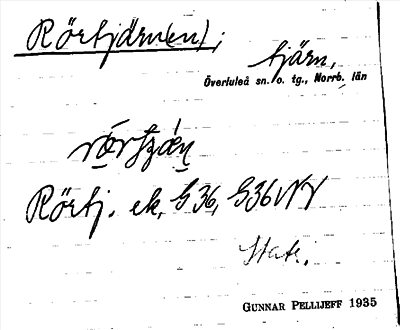 Rörtjärn(en);
tjärn,
Överluleå sn. o. tg., Norrb. län
Rörtj. ek, G 36, G36 NV
Stat.
GUNNAR PELLIJEFF 1935